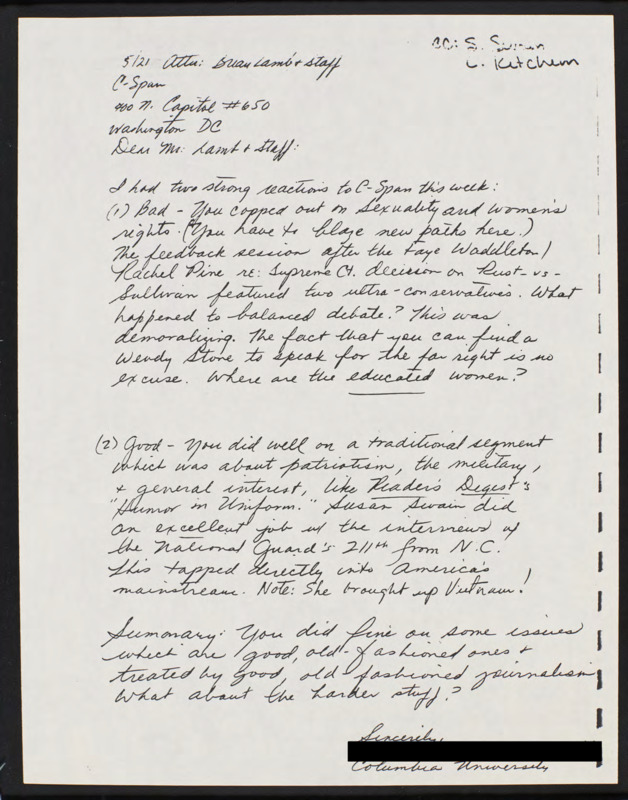 CC: S. Swain
L. Ketchem
5/21 Attn: Brian Lamb & Staff
C-Span
400 N. Capitol #650
Washington DC
Dear Mr. Lamb & Staff:
I had two strong reactions to C-Span this week:
(1) Bad - You copped out on sexuality and women's
rights. (You have to blaze new paths here.)
The feedback session after the Faye Waddleton/
Rachel Pine re: Supreme Ct. decision on Rust-vs-
Sullivan featured two ultra-conservatives. What
happened to balanced debate? This was
demoralizing. The fact that you can find a
Wendy Stone to speak for the far right is no
excuse. Where are the educated women?
(2) Good - You did well on a traditional segment
which was about patriotism, the military,
& general interest, like Reader's Degest's
"Humor in Uniform." Susan Swain did
an excellent job w/ the interviews of
the National Guard's 211th from N.C.
This tapped directly into America's
mainstream. Note: She brought up Vietnam!
Summary: You did fine on some issues
which are good, old-fashioned ones &
treated by good, old fashioned journalism
What about the harder stuff?
Sincerely,
Columbia University